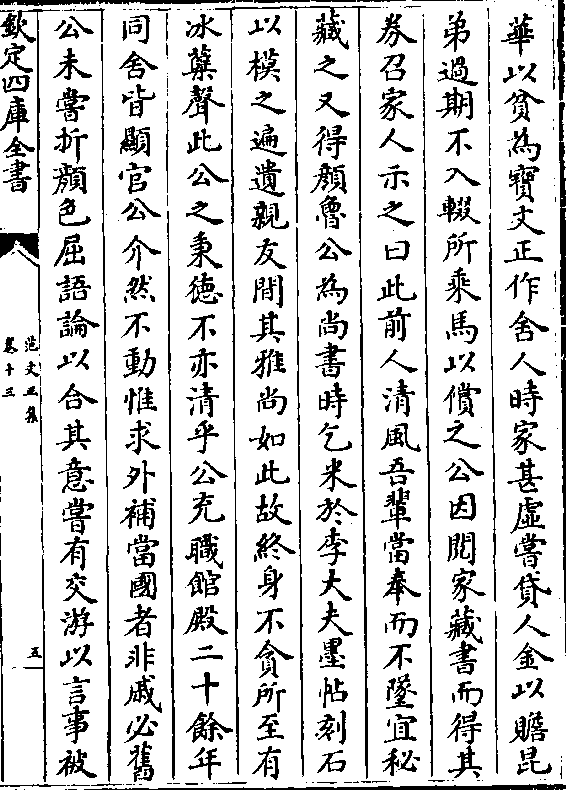 華以貧為寶文正作舍人時家甚虛嘗貸人金以贍昆
弟過期不入輟所乘馬以償之公因閱家藏書而得其
券召家人示之曰此前人清風吾輩當奉而不墜宜秘
藏之又得顔魯公為尚書時乞米於李大夫墨帖刻石
以模之遍遺親友間其雅尚如此故終身不貪所至有
冰蘖聲此公之秉徳不亦清乎公充職館殿二十餘年
同舍皆顯官公介然不動惟求外補當國者非戚必舊
公未嘗折顔色屈語論以合其意嘗有交游以言事被
欽定四庫全書
范文正集
卷十三
五